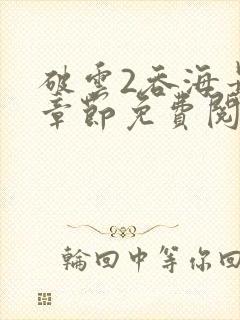 破雲2吞海
章節免費閱
輪回中等你回